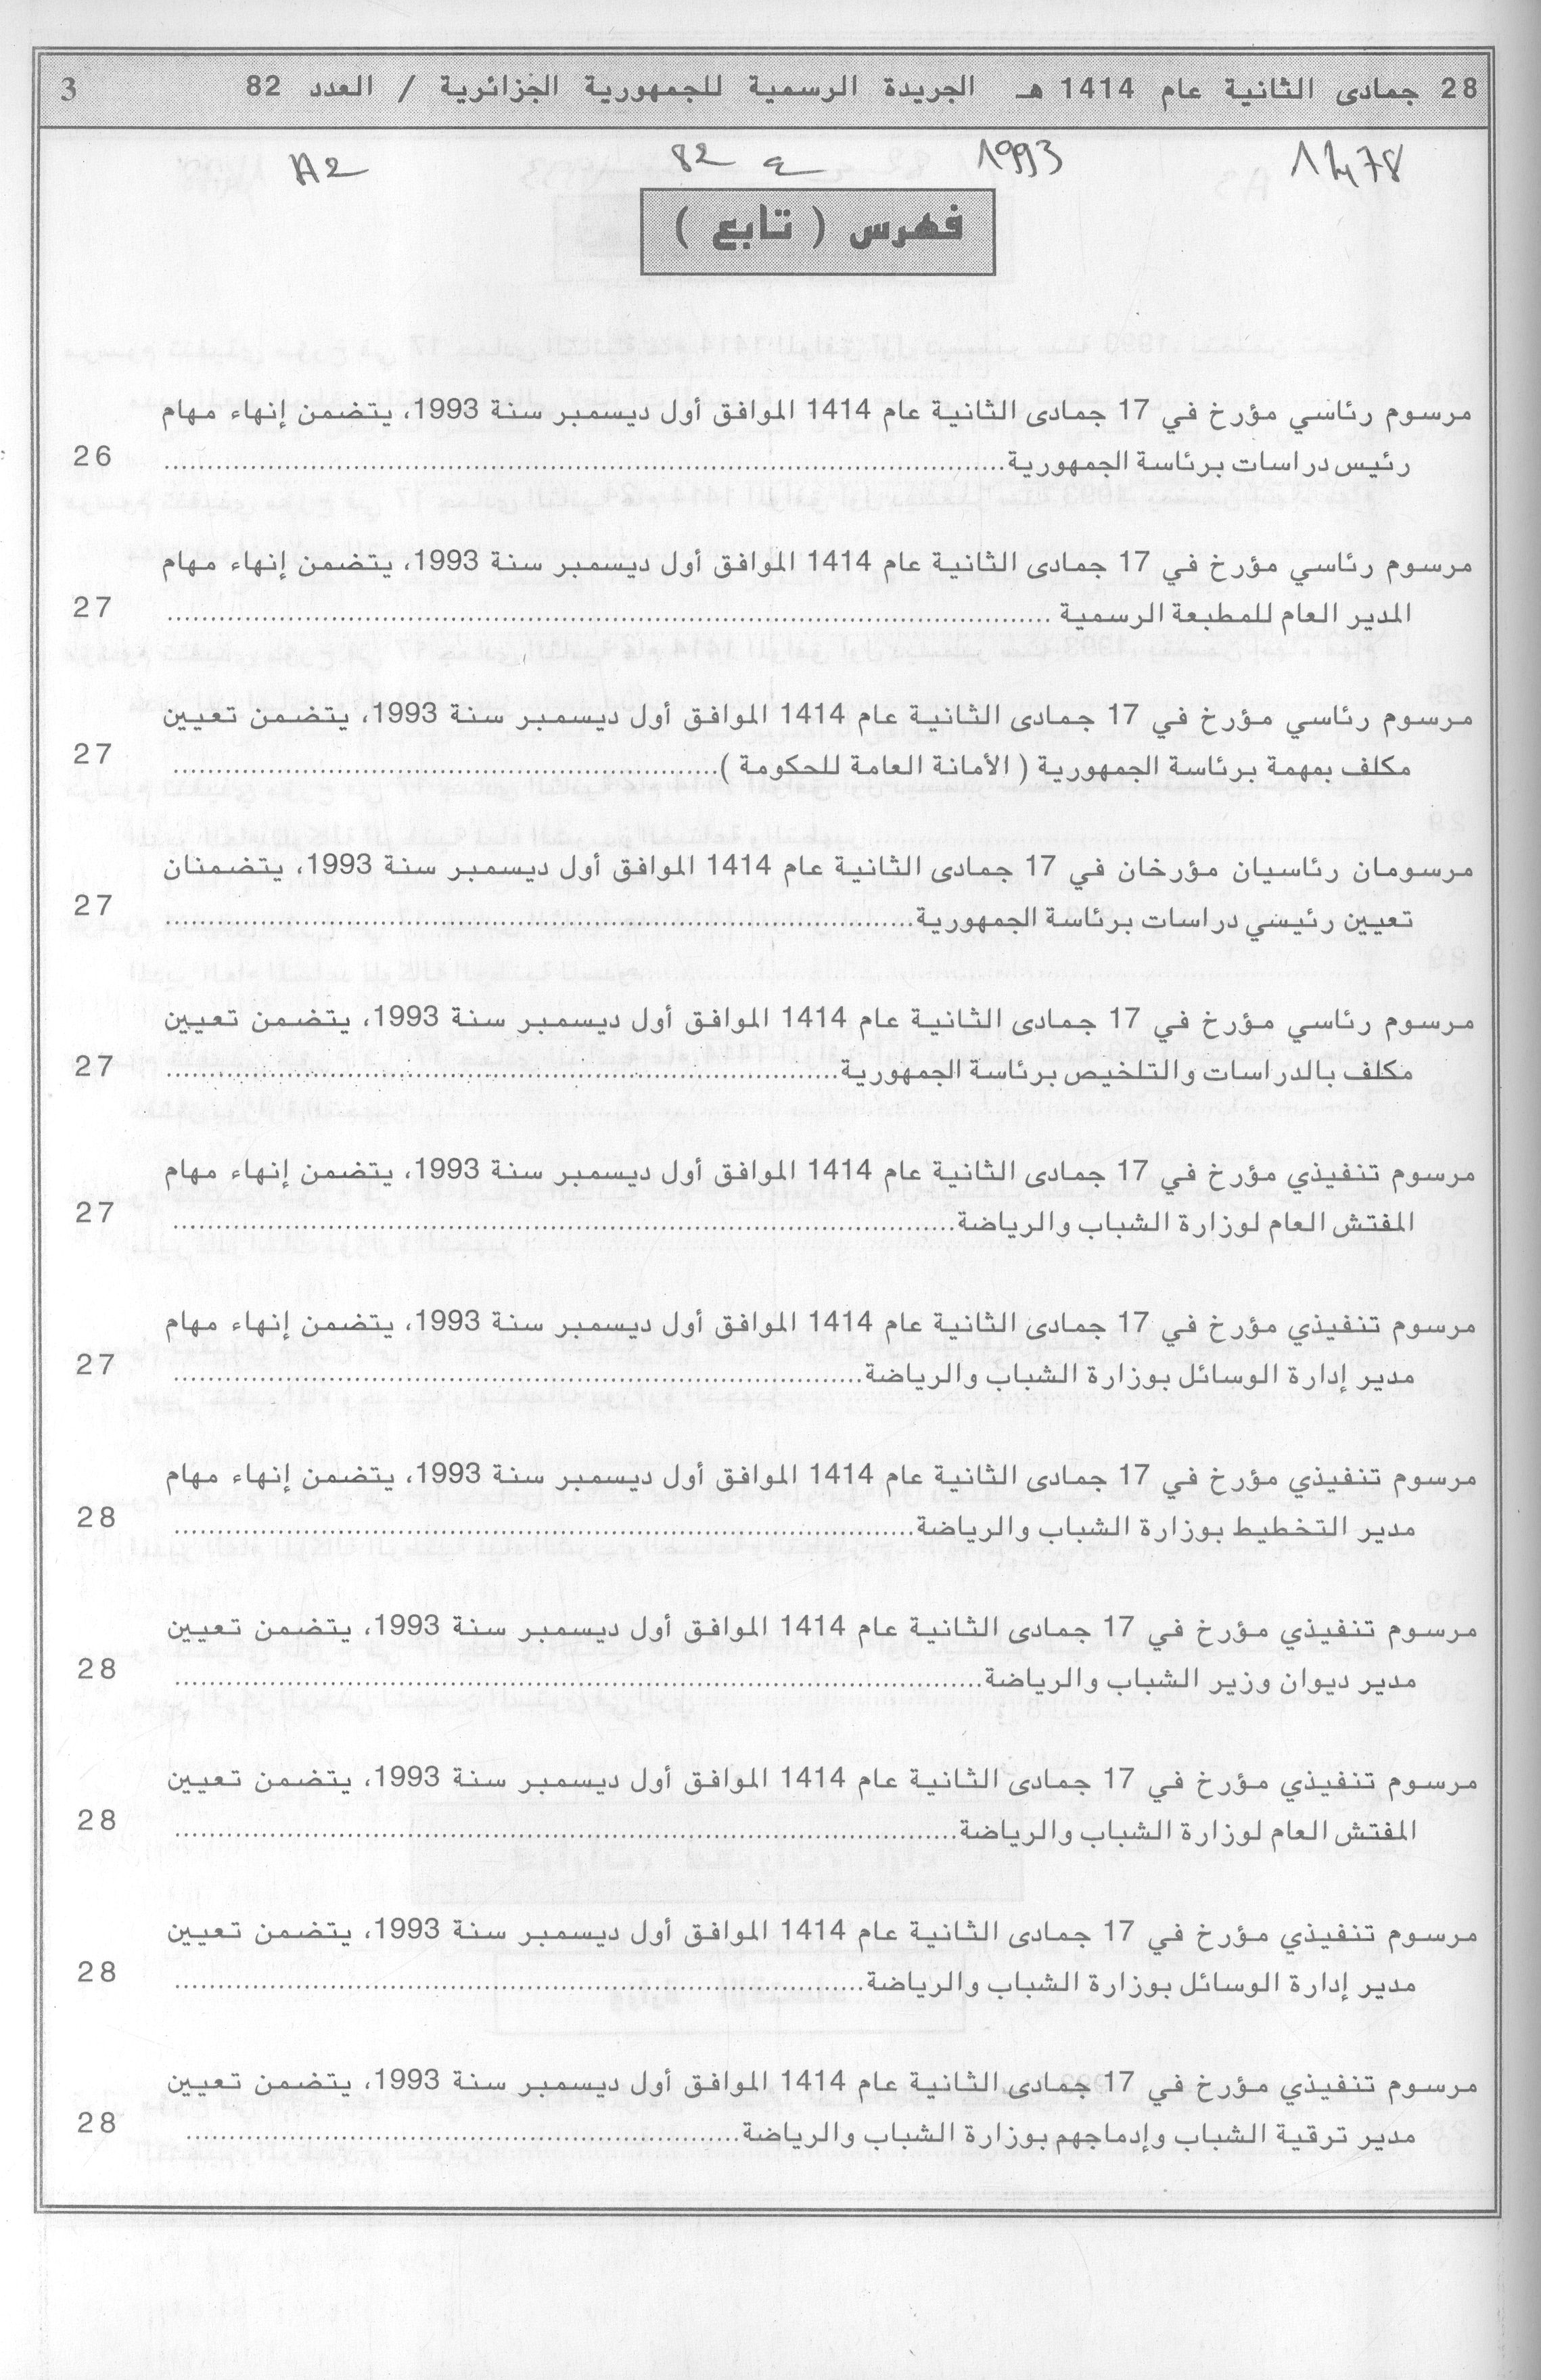 28 جمادى الثانية عام 1414 هـ الجريدة الرسمية للجمهورية الجزائرية / العدد 82 3
1993 ع 82 A2
فهرس ( تابع )
مرسوم رئاسي مؤرخ في 17 جمادى الثانية عام 1414 الموافق أول ديسمبر سنة 1993، يتضمن إنهاء مهام
رئيس دراسات برئاسة الجمهورية........................................ 26
مرسوم رئاسي مؤرخ في 17 جمادى الثانية عام 1414 الموافق أول ديسمبر سنة 1993، يتضمن إنهاء مهام
المدير العام للمطبعة الرسمية ........................................ 27
مرسوم رئاسي مؤرخ في 17 جمادى الثانية عام 1414 الموافق أول ديسمبر سنة 1993، يتضمن تعيين
مكلف بمهمة برئاسة الجمهورية ( الأمانة العامة للحكومة )........................................ 27
مرسومان رئاسيان مؤرخان في 17 جمادى الثانية عام 1414 الموافق أول ديسمبر سنة 1993، يتضمنان
تعيين رئيسي دراسات برئاسة الجمهورية........................................ 27
مرسوم رئاسي مؤرخ في 17 جمادى الثانية عام 1414 الموافق أول ديسمبر سنة 1993، يتضمن تعيين
مكلف بالدراسات والتلخيص برئاسة الجمهورية........................................ 27
مرسوم تنفيذي مؤرخ في 17 جمادى الثانية عام 1414 الموافق أول ديسمبر سنة 1993، يتضمن إنهاء مهام
المفتش العام لوزارة الشباب والرياضة........................................ 27
مرسوم تنفيذي مؤرخ في 17 جمادى الثانية عام 1414 الموافق أول ديسمبر سنة 1993، يتضمن إنهاء مهام
مدير إدارة الوسائل بوزارة الشباب والرياضة........................................ 27
مرسوم تنفيذي مؤرخ في 17 جمادى الثانية عام 1414 الموافق أول ديسمبر سنة 1993، يتضمن إنهاء مهام
مدير التخطيط بوزارة الشباب والرياضة........................................ 28
مرسوم تنفيذي مؤرخ في 17 جمادى الثانية عام 1414 الموافق أول ديسمبر سنة 1993، يتضمن تعيين
مدير ديوان وزير الشباب والرياضة........................................ 28
مرسوم تنفيذي مؤرخ في 17 جمادى الثانية عام 1414 الموافق أول ديسمبر سنة 1993، يتضمن تعيين
المفتش العام لوزارة الشباب والرياضة........................................ 28
مرسوم تنفيذي مؤرخ في 17 جمادى الثانية عام 1414 الموافق أول ديسمبر سنة 1993، يتضمن تعيين
مدير إدارة الوسائل بوزارة الشباب والرياضة........................................ 28
مرسوم تنفيذي مؤرخ في 17 جمادى الثانية عام 1414 الموافق أول ديسمبر سنة 1993، يتضمن تعيين
مدير ترقية الشباب وإدماجهم بوزارة الشباب والرياضة........................................ 28